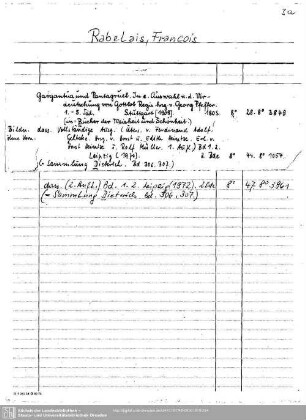 3a
Rabelais, Francois
Gargantua und Pantagruel. In d. Auswahl u. d. Ver-
deutschung von Gottlob Regis hrsg. v. Georg Pfeffer.
1.-5. Tsd. Stuttgart (1909). 1805. 8° 28. 8° 3849
(in: Bücher der Weisheit und Schönheit)
dass. Vollständige Ausg. (Übers. v. Ferdinand Adolf
Gelbcke hrg. v. Horst u. Edith Heintze Erl. v.
Horst Heintze u. Rolf Müller. 1. Aufl.) Bd 1. 2.
Leipzig (1970). 2 Bde 8°
(= Sammlung Dieterich. Bd 306, 307.)
dass. (2. Aufl.) Bd. 1. 2. Leipzig (1972). 2 Bde 8° 47. 8° 3961
(= Sammlung Dieterich Bd. 306, 307.)